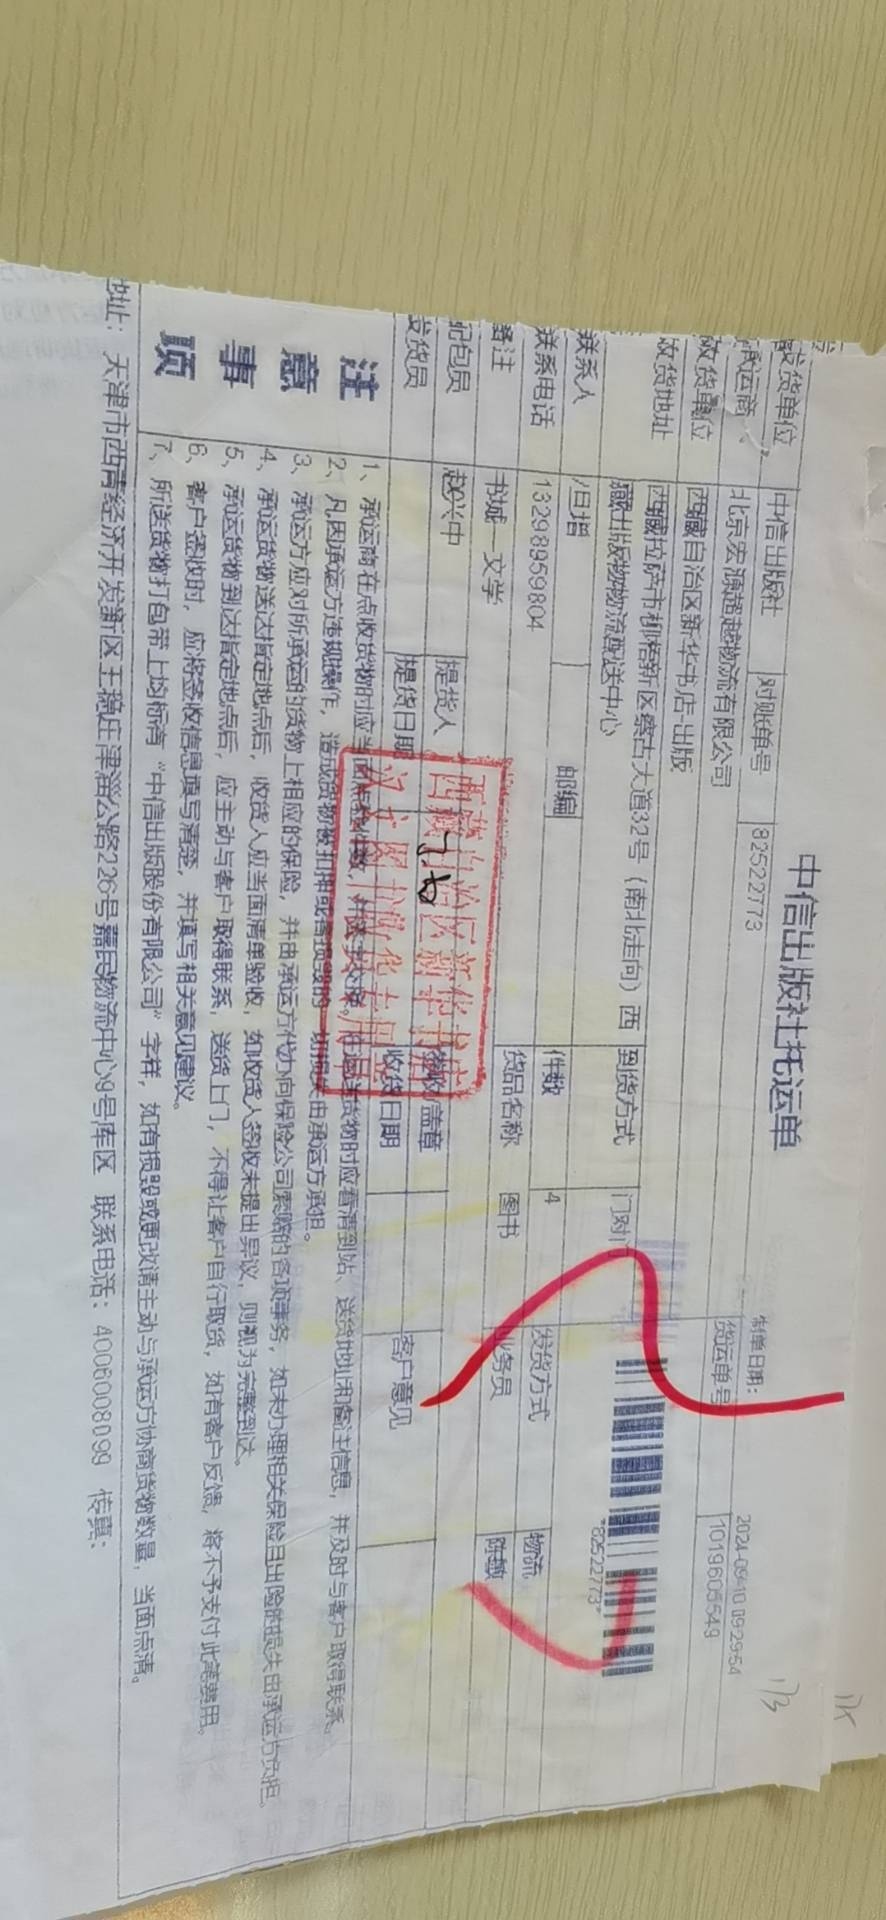 中信出版社托运单
制单日期： 2024-09-10 09:29:54
发货单位 中信出版社 对账单号 82522773 货运单号 1019605549
承运商 北京宏源超越物流有限公司
收货单位 西藏自治区新华书店-出版
收货地址 西藏拉萨市柳梧新区察古大道32号（南北走向）西
藏出版物物流配送中心 到货方式 门对门
*82522773*
联系人 旦增 邮编
联系电话 13298959804 件数 4 发货方式 物流
备注 书城一文学 货品名称 图书 业务员 陈敏
配包员 赵兴中 提货人 签收/盖章 客户意见
发货员 提货日期 收货日期
西藏自治区新华书店
注意事项
1、承运商在点收货物时应当面点清件数，并签字交接。在运送货物时应看清到站、送货地址和备注信息，并及时与客户取得联系。
2、凡因承运方违规操作，造成货物被扣押或有损毁的一切损失由承运方承担。
3、承运方应对所承运的货物上相应的保险，并由承运方代办向保险公司索赔的各项事务，如未办理相关保险且出险的损失由承运方负担。
4、承运货物送达指定地点后，收货人应当面清单验收，如收货人签收未提出异议，则视为完整到达。
5、承运货物到达指定地点后，应主动与客户取得联系，送货上门，不得让客户自行取货，如有客户反馈，将不予支付此笔费用。
6、客户签收时，应将签收信息填写清楚，并填写相关意见建议。
7、所送货物打包带上均标清“中信出版股份有限公司”字样，如有损毁或更改请主动与承运方协商货物数量，当面点清。
地址： 天津市西青经济开发新区王稳庄津淄公路226号嘉民物流中心9号库区 联系电话：4006008099 传真：
1/3